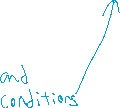 and
conditions